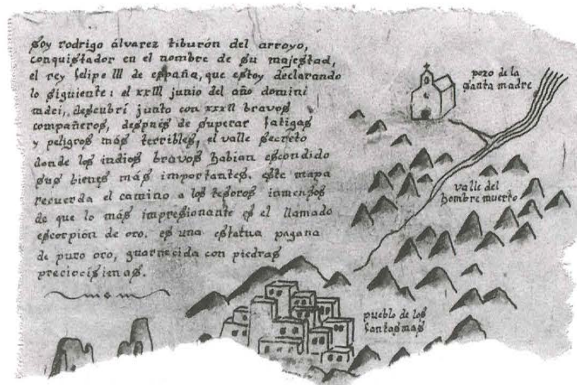 soy rodrigo álvarez tiburón del arroyo,
conquistador en el nombre de su majestad,
el rey felipe III de españa, que estoy declarando
lo siguiente: el xxIII junio del año domini
mdci, descubrí junto con xxxII bravos
compañeros, después de superar fatigas
y peligros más terribles, el valle secreto
donde los indios bravos habían escondido
sus bienes más importantes. este mapa
recuerda el camino a los tesoros inmensos
de que lo más impresionante es el llamado
escorpión de oro. es una estatua pagana
de puro oro, guarnecida con piedras
preciocisimas.
pozo de la
santa madre
valle del
hombre muerto
pueblo de los
fantasmas